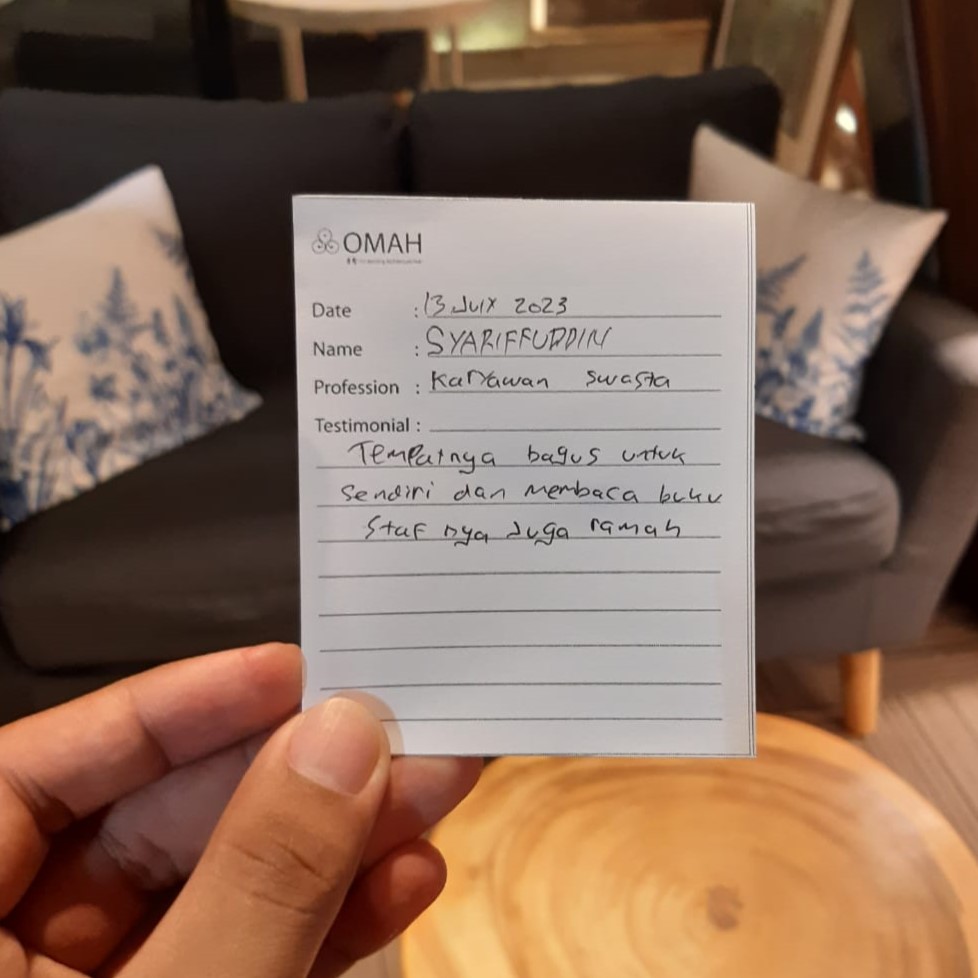 OMAH
Date : 13 Juix 2023
Name : SYARIFFUDDIN
Profession : Karyawan Swasta
Testimonial :
Tempatnya bagus untuk
sendiri dan membaca buku
Staf nya Juga ramah